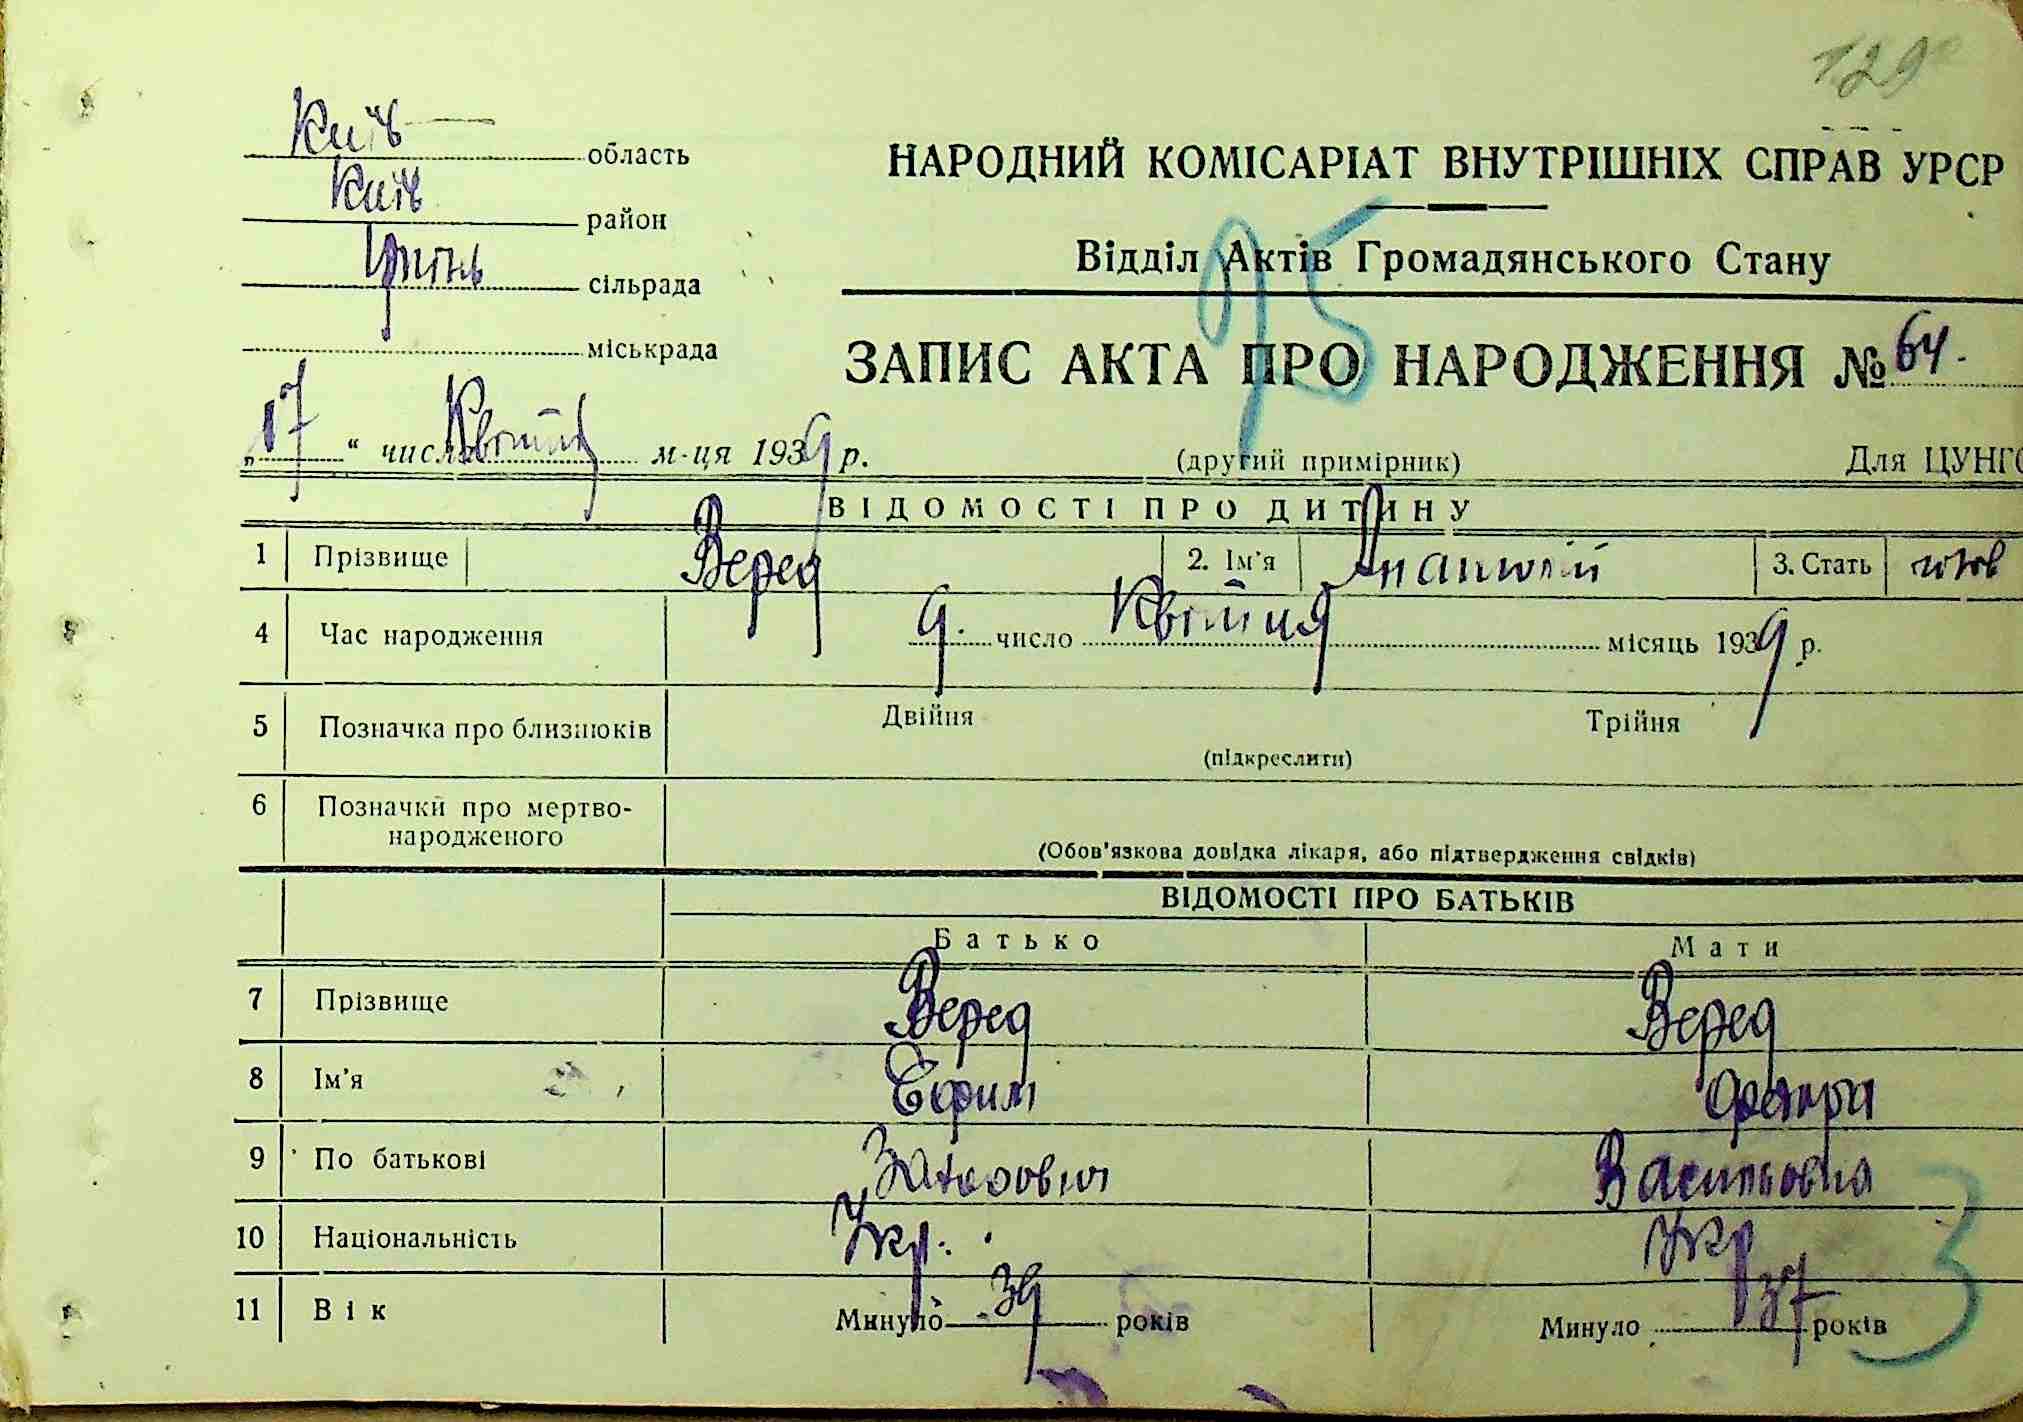 129
Київ область
Київ район
Ірпінь сільрада
міськрада
НАРОДНИЙ КОМІСАРІАТ ВНУТРІШНІХ СПРАВ УРСР
Відділ Актів Громадянського Стану
95
ЗАПИС АКТА ПРО НАРОДЖЕННЯ № 64.
„17“ числа Квітня м-ця 1939 р.
(другий примірник)
Для ЦУНГО
ВІДОМОСТІ ПРО ДИТИНУ
1 Прізвище Веред 2. Ім'я Анатолій 3. Стать чолов
4 Час народження 9. число Квітня місяць 1939 р.
5 Позначка про близнюків Двійня Трійня
(підкреслити)
6 Позначки про мертво-
народженого
(Обов'язкова довідка лікаря, або підтвердження свідків)
ВІДОМОСТІ ПРО БАТЬКІВ
Батько Мати
7 Прізвище Веред Веред
8 Ім'я Єфим
9 По батькові Васильовна
10 Національність Укр. Укр
11 Вік Минуло 39 років Минуло 37 років
3